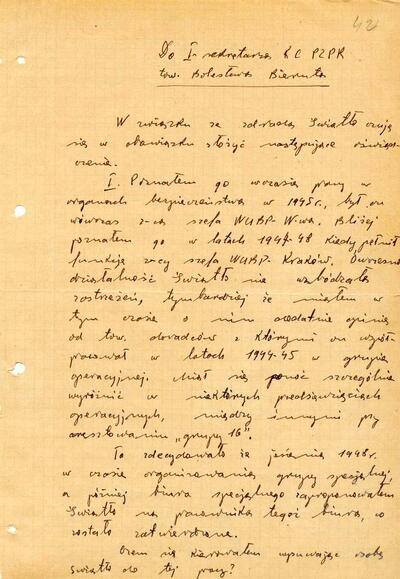 42
Do I-sekretarza KC PZPR
tow. Bolesława Bieruta
W związku ze zdradą Światło czuję
się w obowiązku złożyć następujące oświad-
czenie.
I. Poznałem go w czasie pracy w
organach bezpieczeństwa w 1945 r., był on
wówczas z-cą szefa WUBP W-wa. Bliżej
poznałem go w latach 1947-48 kiedy pełnił
funkcję z-cy szefa WUBP-Kraków. Ówczesna
działalność Światło nie wzbudzała
zastrzeżeń, tymbardziej że miałem w
tym czasie o nim dodatnie opinie
od tow. doradców z którymi on współ-
pracował w latach 1944-45 w grupie
operacyjnej. Miał się ponoć szczególnie
wyróżnić w niektórych przedsięwzięciach
operacyjnych, między innymi przy
aresztowaniu „grupy 16".
To zdecydowało że jesienią 1948 r.
w czasie organizowania grupy specjalnej,
a później biura specjalnego zaproponowałem
Światło na pracownika tegoż biura, co
zostało zatwierdzone.
Czem się kierowałem wysuwając osobę
Światło do tej pracy?